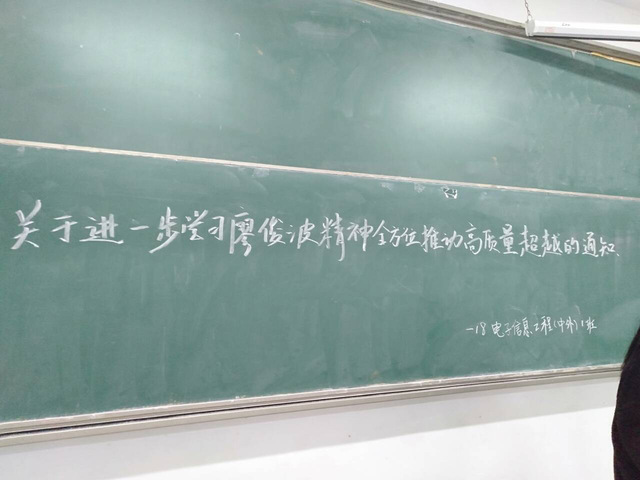 关于进一步学习廖俊波精神全方位推动高质量超越的通知
一18电子信息工程(中外)1班